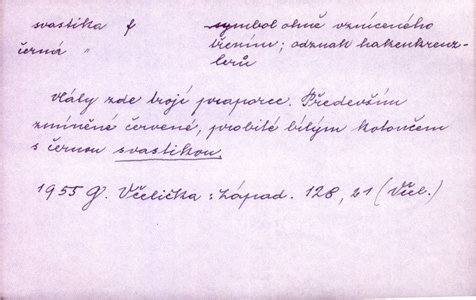 svastika f symbol ohně vzníceného
černá " třením; odznak hakenkreuz-
lerů
Vlály zde trojí praporce. Především
zmíněné červené, probité bílým kotoučem
s černou svastikou.
1955 G. Včelička: Západ. 128, 21 (Včel.)